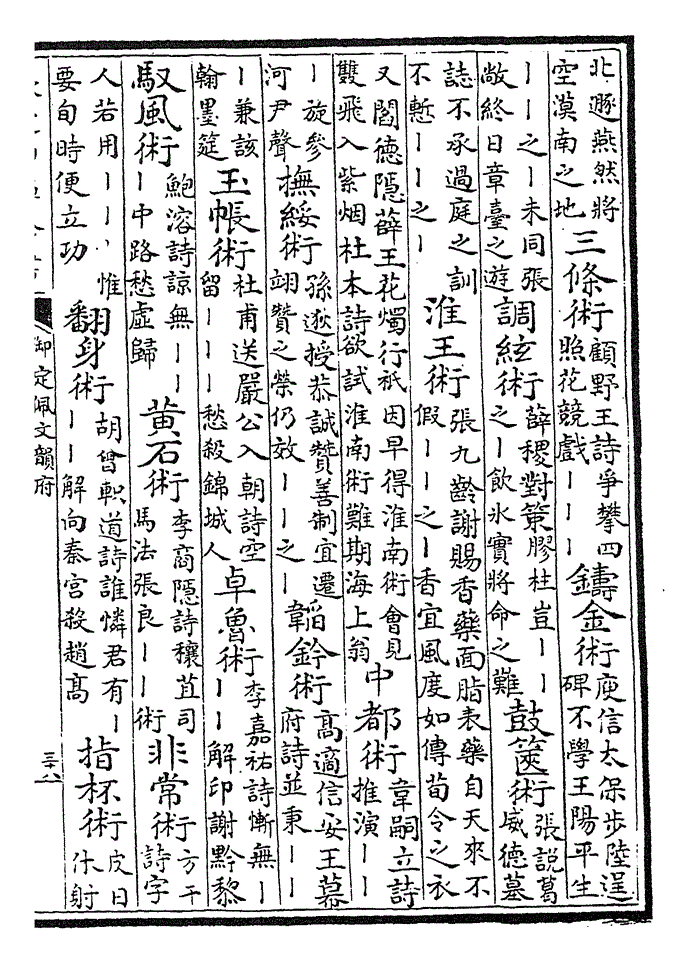 北遯燕然將
空漠南之地
三條術
顧野王詩爭攀四
照花競戲｜｜｜
鑄金術
庾信太保步陸逞
碑不學王陽平生
｜｜之｜未同張
敞終日章臺之遊
調絃術
薛稷對策膠柱豈｜｜
之｜飲氷實將命之難
鼓篋術
張説葛
威德墓
誌不承過庭之訓
不慙｜｜之｜
淮王術
張九齡謝賜香藥面脂表藥自天來不
假｜｜之｜香宜風度如傳荀令之衣
又閻德隱薛王花燭行祇因早得淮南術會見
雙飛入紫烟杜本詩欲試淮南術難期海上翁
中都術
韋嗣立詩
推演｜｜
｜旋參
河尹聲
撫綏術
孫逖授恭誠贊善制宜遷
翊贊之榮仍效｜｜之｜
韜鈐術
高適信安王幕
府詩並秉｜｜
｜兼該
翰墨筵
玉帳術
杜甫送嚴公入朝詩空
留｜｜｜愁殺錦城人
卓魯術
李嘉祐詩慚無｜
｜｜解印謝黔黎
馭風術
鮑溶詩諒無｜｜
｜中路愁虛歸
黃石術
李商隱詩穰苴司
馬法張良｜｜術
非常術
方干
詩字
人若用｜｜｜惟
要旬時便立功
翻身術
胡曾軹道詩誰憐君有｜
｜｜解向秦宮殺趙高
指杯術
皮日
休射
御定佩文韻府
三十八